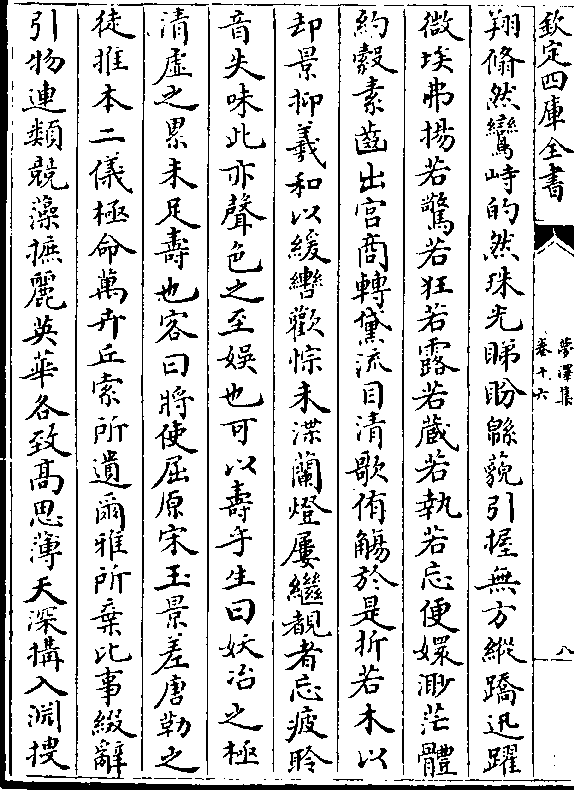 欽定四庫全書
夢澤集
卷十六
八
翔翛然鸞峙的然珠光睇盼緜藐引握無方縱蹻迅躍
微埃弗揚若驚若狂若露若藏若執若忘便嬛渺茫體
約縠素齒出宫商轉黛流目清歌侑觴於是折若木以
却景抑羲和以緩轡歡悰未渫蘭燈屢繼覩者忘疲聆
音失味此亦聲色之至娱也可以壽乎生曰妖冶之極
清虚之累未足壽也客曰將使屈原宋玉景差唐勒之
徒推本二儀極命萬卉丘索所遺爾雅所棄比事綴辭
引物連類競藻摭麗英華各致髙思薄天深搆入淵搜